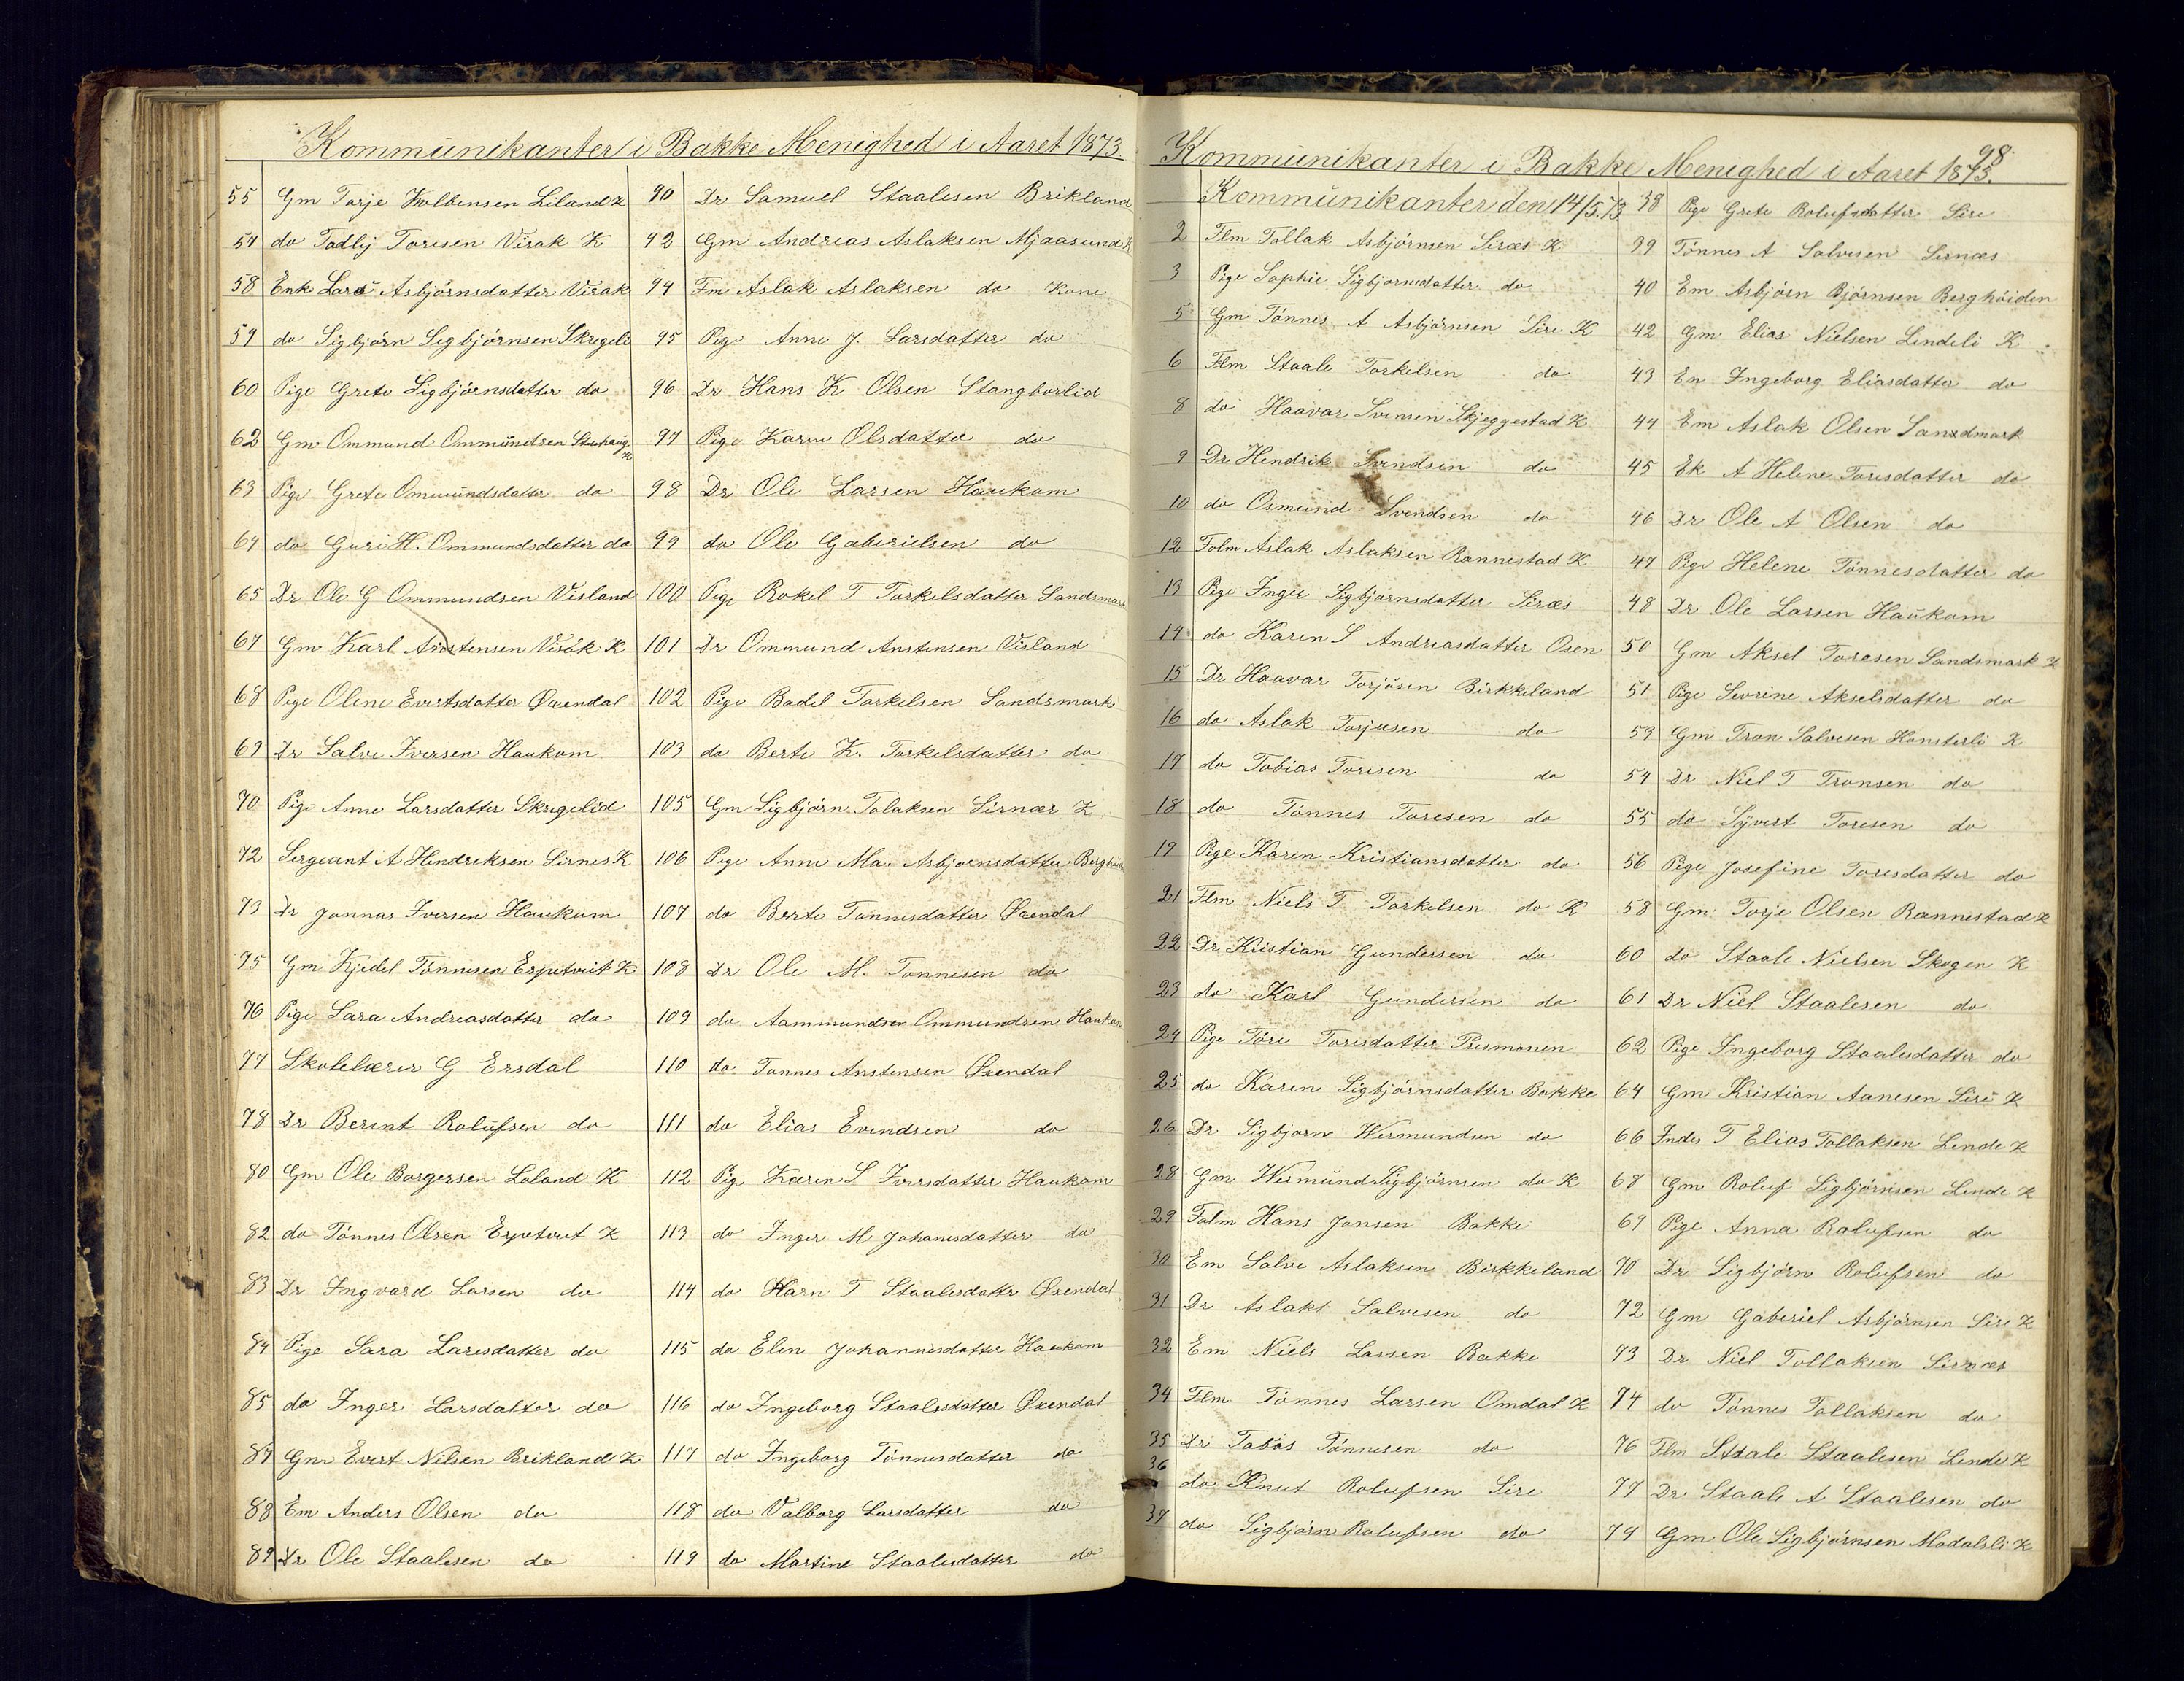 Kommunikanter i Bakke Menighed i Aaret 1873.
55 Gm Torje Kolbensen Liland K
57 do Tadlij Toresen Virak K
58 Enk Lars Asbjörnsdatter Virak
59 do Sigbjörn Sigbjörnsen Skregeli
60 Pige Grete Sigbjörnsdatter do
62 Gm Ommund Ommundsen K
63 Pige Grete Ommundsdatter do
64 do Guri H. Ommundsdatter do
65 Dr Ole G Ommundsen Visland
67 Gm Karl Anstensen Virak K
68 Pige Olene Evertsdatter Øxendal
69 Dr Salve Iversen Haukom
70 Pige Anne Larsdatter Skregelid
72 Sergeant A Hendreksen Sirnes K
73 Dr Jonnas Iversen Haukom
75 Gm Kjedel Tönnesen Espetveit K
76 Pige Sara Andreasdatter do
77 Skolelærer G Ersdal
78 Dr Berent Rolufsen do
80 Gm Ole Borgersen Loland K
82 do Tönnes Olsen Espetveit K
83 Dr Ingvard Larsen do
84 Pige Sara Larsdatter do
85 do Inger Larsdatter do
87 Gm Evert Nilsen Brikland K
88 Em Anders Olsen do
89 Dr Ole Staalesen do
90 Dr Samuel Staalesen Brikland
92 Gm Andreas Aslaksen Mjaasund K
94 Fm Aslak Aslaksen do Kone
95 Pige Anne J. Larsdatter do
96 Dr Hans K Olsen Stangborlid
97 Pige Karen Olsdatter do
98 Dr Ole Larsen Haukom
99 do Ole Gabrielsen do
100 Pige Rakel T Torkelsdatter Sandsmark
101 Dr Ommund Anstensen Visland
102 Pige Badel Torkelsen Sandsmark
103 do Berte K. Torkelsdatter do
105 Gm Sigbjörn Tolaksen Sirnæs K
106 Pige Anne Ma. Asbjornsdatter
107 do Berte Tonnesdatter Øxendal
108 Dr Ole M. Tonnesen do
109 do Aammundsen Ommundsen Haukom
110 do Tonnes Anstensen Øxendal
111 do Elias Evendsen do
112 Pig Karen S Iversdatter Haukom
113 do Inger M Johanesdatter do
114 do Karn T Staalesdattr Øxendal
115 do Elen Johannesdatter Haukom
116 do Ingeborg Staalesdatter Øxendal
117 do Ingeborg Tönnesdatter do
118 do Valborg Larsdatter do
119 do Martine Staalesdatter do
98
Kommunikanter i Bakke Menighed i Aaret 1873.
Kommunikanter den 14/5.73
2 Flm Tollak Asbjörnsen Siræs K
3 Pige Sophie Sigbjornsdatter do
5 Gm Tönnes A Asbjörnsen Sire K
6 Flm Staale Torkelsen do
8 do Haavar Svensen Skjeggestad K
9 Dr Hendrik Svendsen do
10 do Osmund Svendsen do
12 Folm Aslak Aslaksen Rannestad K
13 Pige Inger Sigbjörnsdatter Siræs
14 do Karen S Andreasdatter Osen
15 Dr Haavar Torjusen Birkkeland
16 do Aslak Torjusen do
17 do Tobias Toresen do
18 do Tönnes Toresen do
19 Pige Karen Kristiansdatter do
21 Flm Niels T Torkelsen do K
22 Dr Kristian Gundersen do
23 do Karl Gundersen do
24 Pige Töre Toresdatter
25 do Karen Sigbjörnsdatter Bakke
26 Dr Sigbjorn Wermundsen do
28 Gm Wermund Sigbjörnsen do K
29 Folm Hans Jansen Bakke
30 Em Salve Aslaksen Birkkeland
31 Dr Aslakt Salvesen do
32 Em Niels Larsen Bakke
34 Flm Tönnes Larsen Omdal K
35 Dr Tabias Tönnesen do
36 do Knut Rolufsen Sire
37 do Sigbjörn Rolufsen do
38 Pige Grete Rolufsdatter Sire
39 Tönnes A Salvesen Sirnæs
40 Em Asbjörn Björnsen Berghöiden
42 Gm Elias Nielsen Lindeli K
43 En Ingeborg Eliasdatter do
44 Em Aslak Olsen Sandmark
45 Ek A Helene Toresdatter do
46 Dr Ole A Olsen do
47 Pige Helene Tönnesdatter do
48 Dr Ole Larsen Haukom
50 Gm Aksel Toresen Sandsmark K
51 Pige Sevrine Akselsdatter do
53 Gm Tron Salvesen Honsterli K
54 Dr Niel T Tronsen do
55 do Syvert Toresen do
56 Pige Josefine Toresdatter do
58 Gm Torje Olsen Rannestad K
60 do Staale Nielsen Skogen K
61 Dr Niel Staalesen do
62 Pige Ingeborg Staalesdatter do
64 Gm Kristian Aanesen Sire K
66 Inder T Elias Tollaksen Linde K
68 Gm Roluf Sigbjörnsen Linde K
69 Pige Anna Rolufsen do
70 Dr Sigbjörn Rolufsen do
72 Gm Gabriel Asbjörnsen Sire K
73 Dr Niel Tollaksen Sirnæs
74 do Tönnes Tollaksen do
76 Flm Staale Staalesen Linde K
77 Dr Staale A Staalesen do
79 Gm Ole Sigbjörnsen Modalsli K